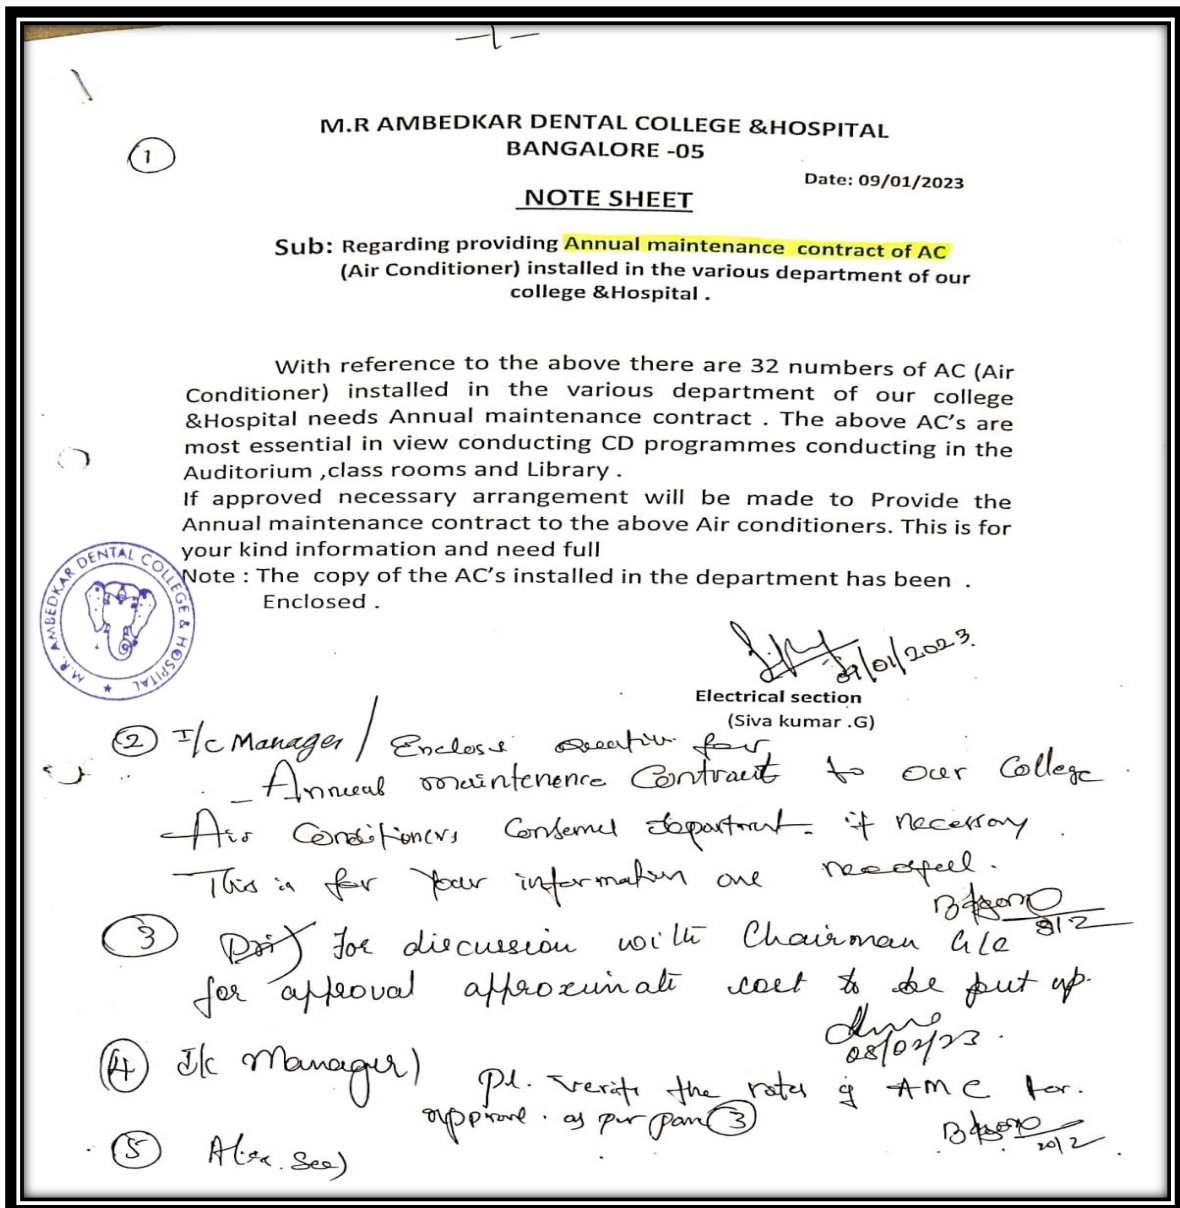 -1-
1
M.R AMBEDKAR DENTAL COLLEGE &HOSPITAL
BANGALORE -05
Date: 09/01/2023
NOTE SHEET
Sub: Regarding providing Annual maintenance contract of AC
(Air Conditioner) installed in the various department of our
college &Hospital .
With reference to the above there are 32 numbers of AC (Air
Conditioner) installed in the various department of our college
&Hospital needs Annual maintenance contract . The above AC's are
most essential in view conducting CD programmes conducting in the
Auditorium ,class rooms and Library .
If approved necessary arrangement will be made to Provide the
Annual maintenance contract to the above Air conditioners. This is for
your kind information and need full
Note : The copy of the AC's installed in the department has been .
Enclosed .
M.R. AMBEDKAR DENTAL COLLEGE & HOSPITAL
/01/2023
Electrical section
(Siva kumar .G)
2 I/c Manager/ Enclose for
Annual maintenence Contract to our College
Air Conditioners department. if necessary.
This is for your information
8/2
3 for discussion with Chairman
for approval approximate cost to be put up.
08/02/23.
4 I/c Manager) Pl. the rates of AMC for.
as per para 3
20/2
5 See)